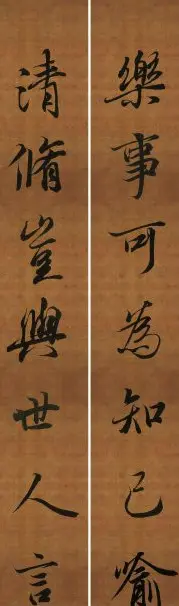 樂事可為知己喻
清脩豈與世人言